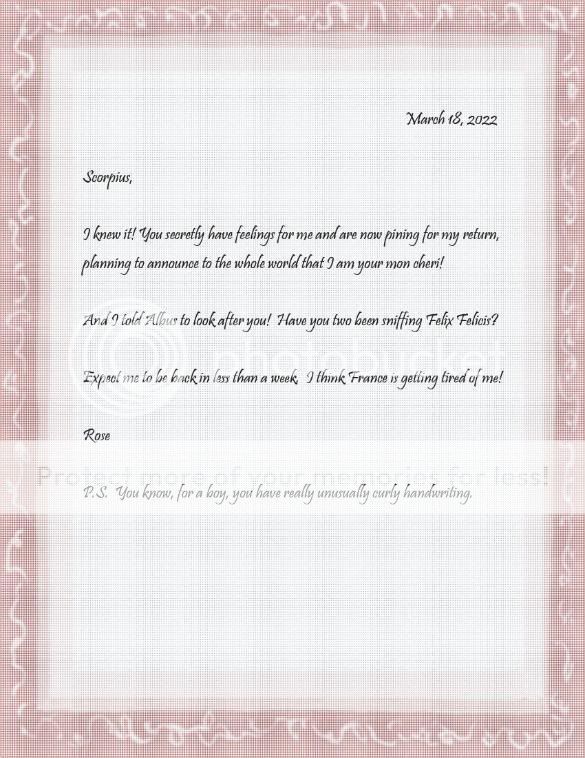 March 18, 2022
Scorpius,
I knew it! You secretly have feelings for me and are now pining for my return,
planning to announce to the whole world that I am your mon cheri!
And I told Albus to look after you! Have you two been sniffing Felix Felicis?
Expect me to be back in less than a week. I think France is getting tired of me!
Rose
P.S. You know, for a boy, you have really unusually curly handwriting.